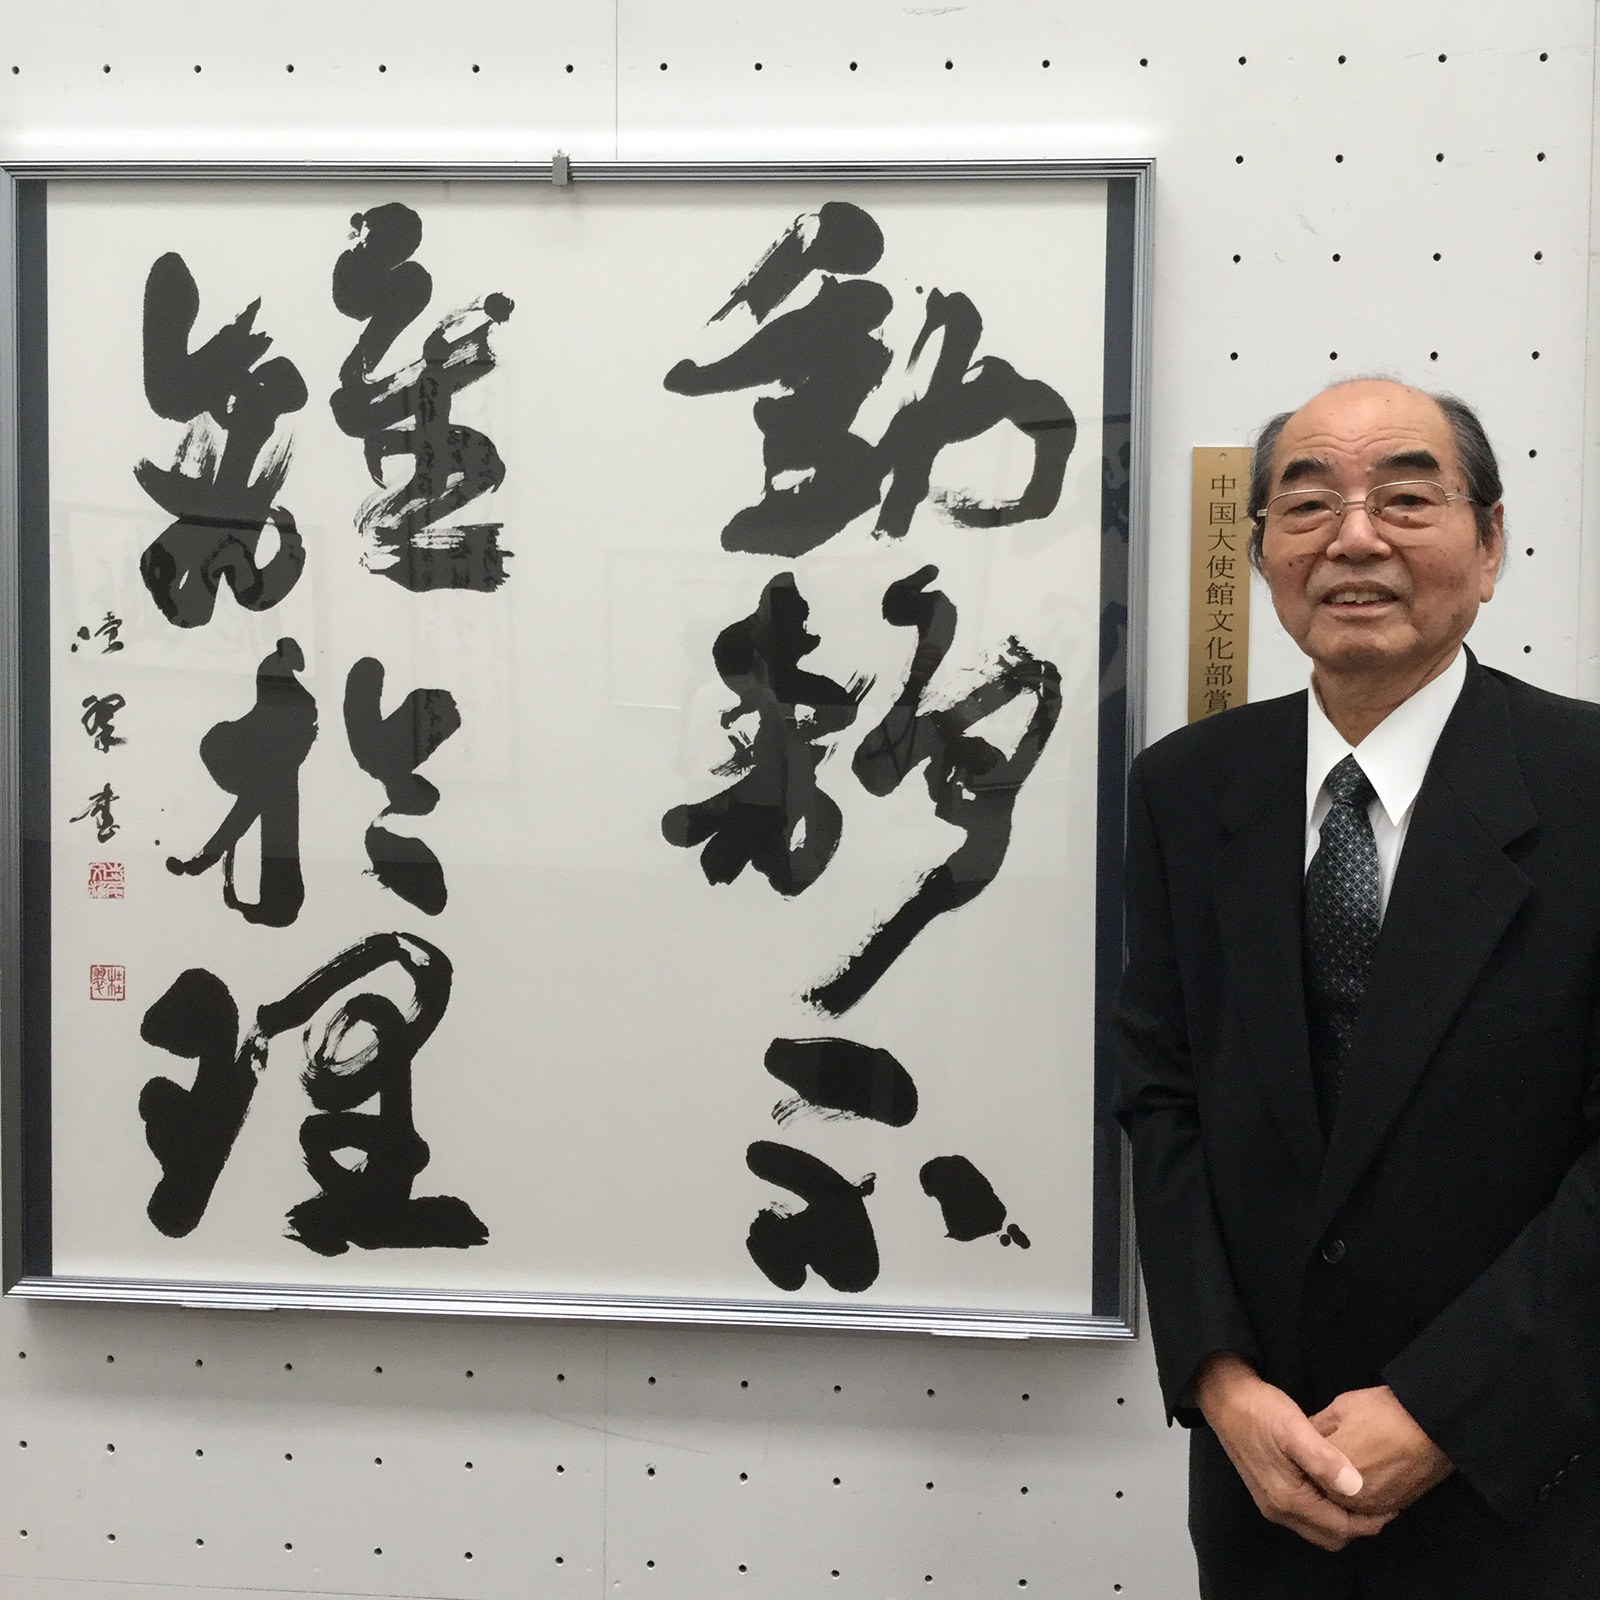 動靜不
離於理
翠書
中国大使館文化部賞